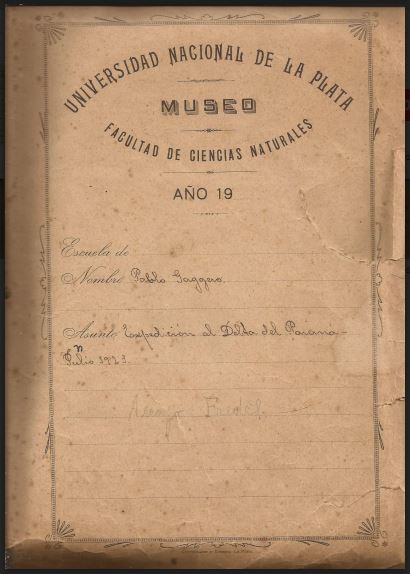 UNIVERSIDAD NACIONAL DE LA PLATA
MUSEO
FACULTAD DE CIENCIAS NATURALES
AÑO 19
Escuela de
Nombre Pablo Gaggero.
Asunto Expedición al Delta del Parana-
1923.